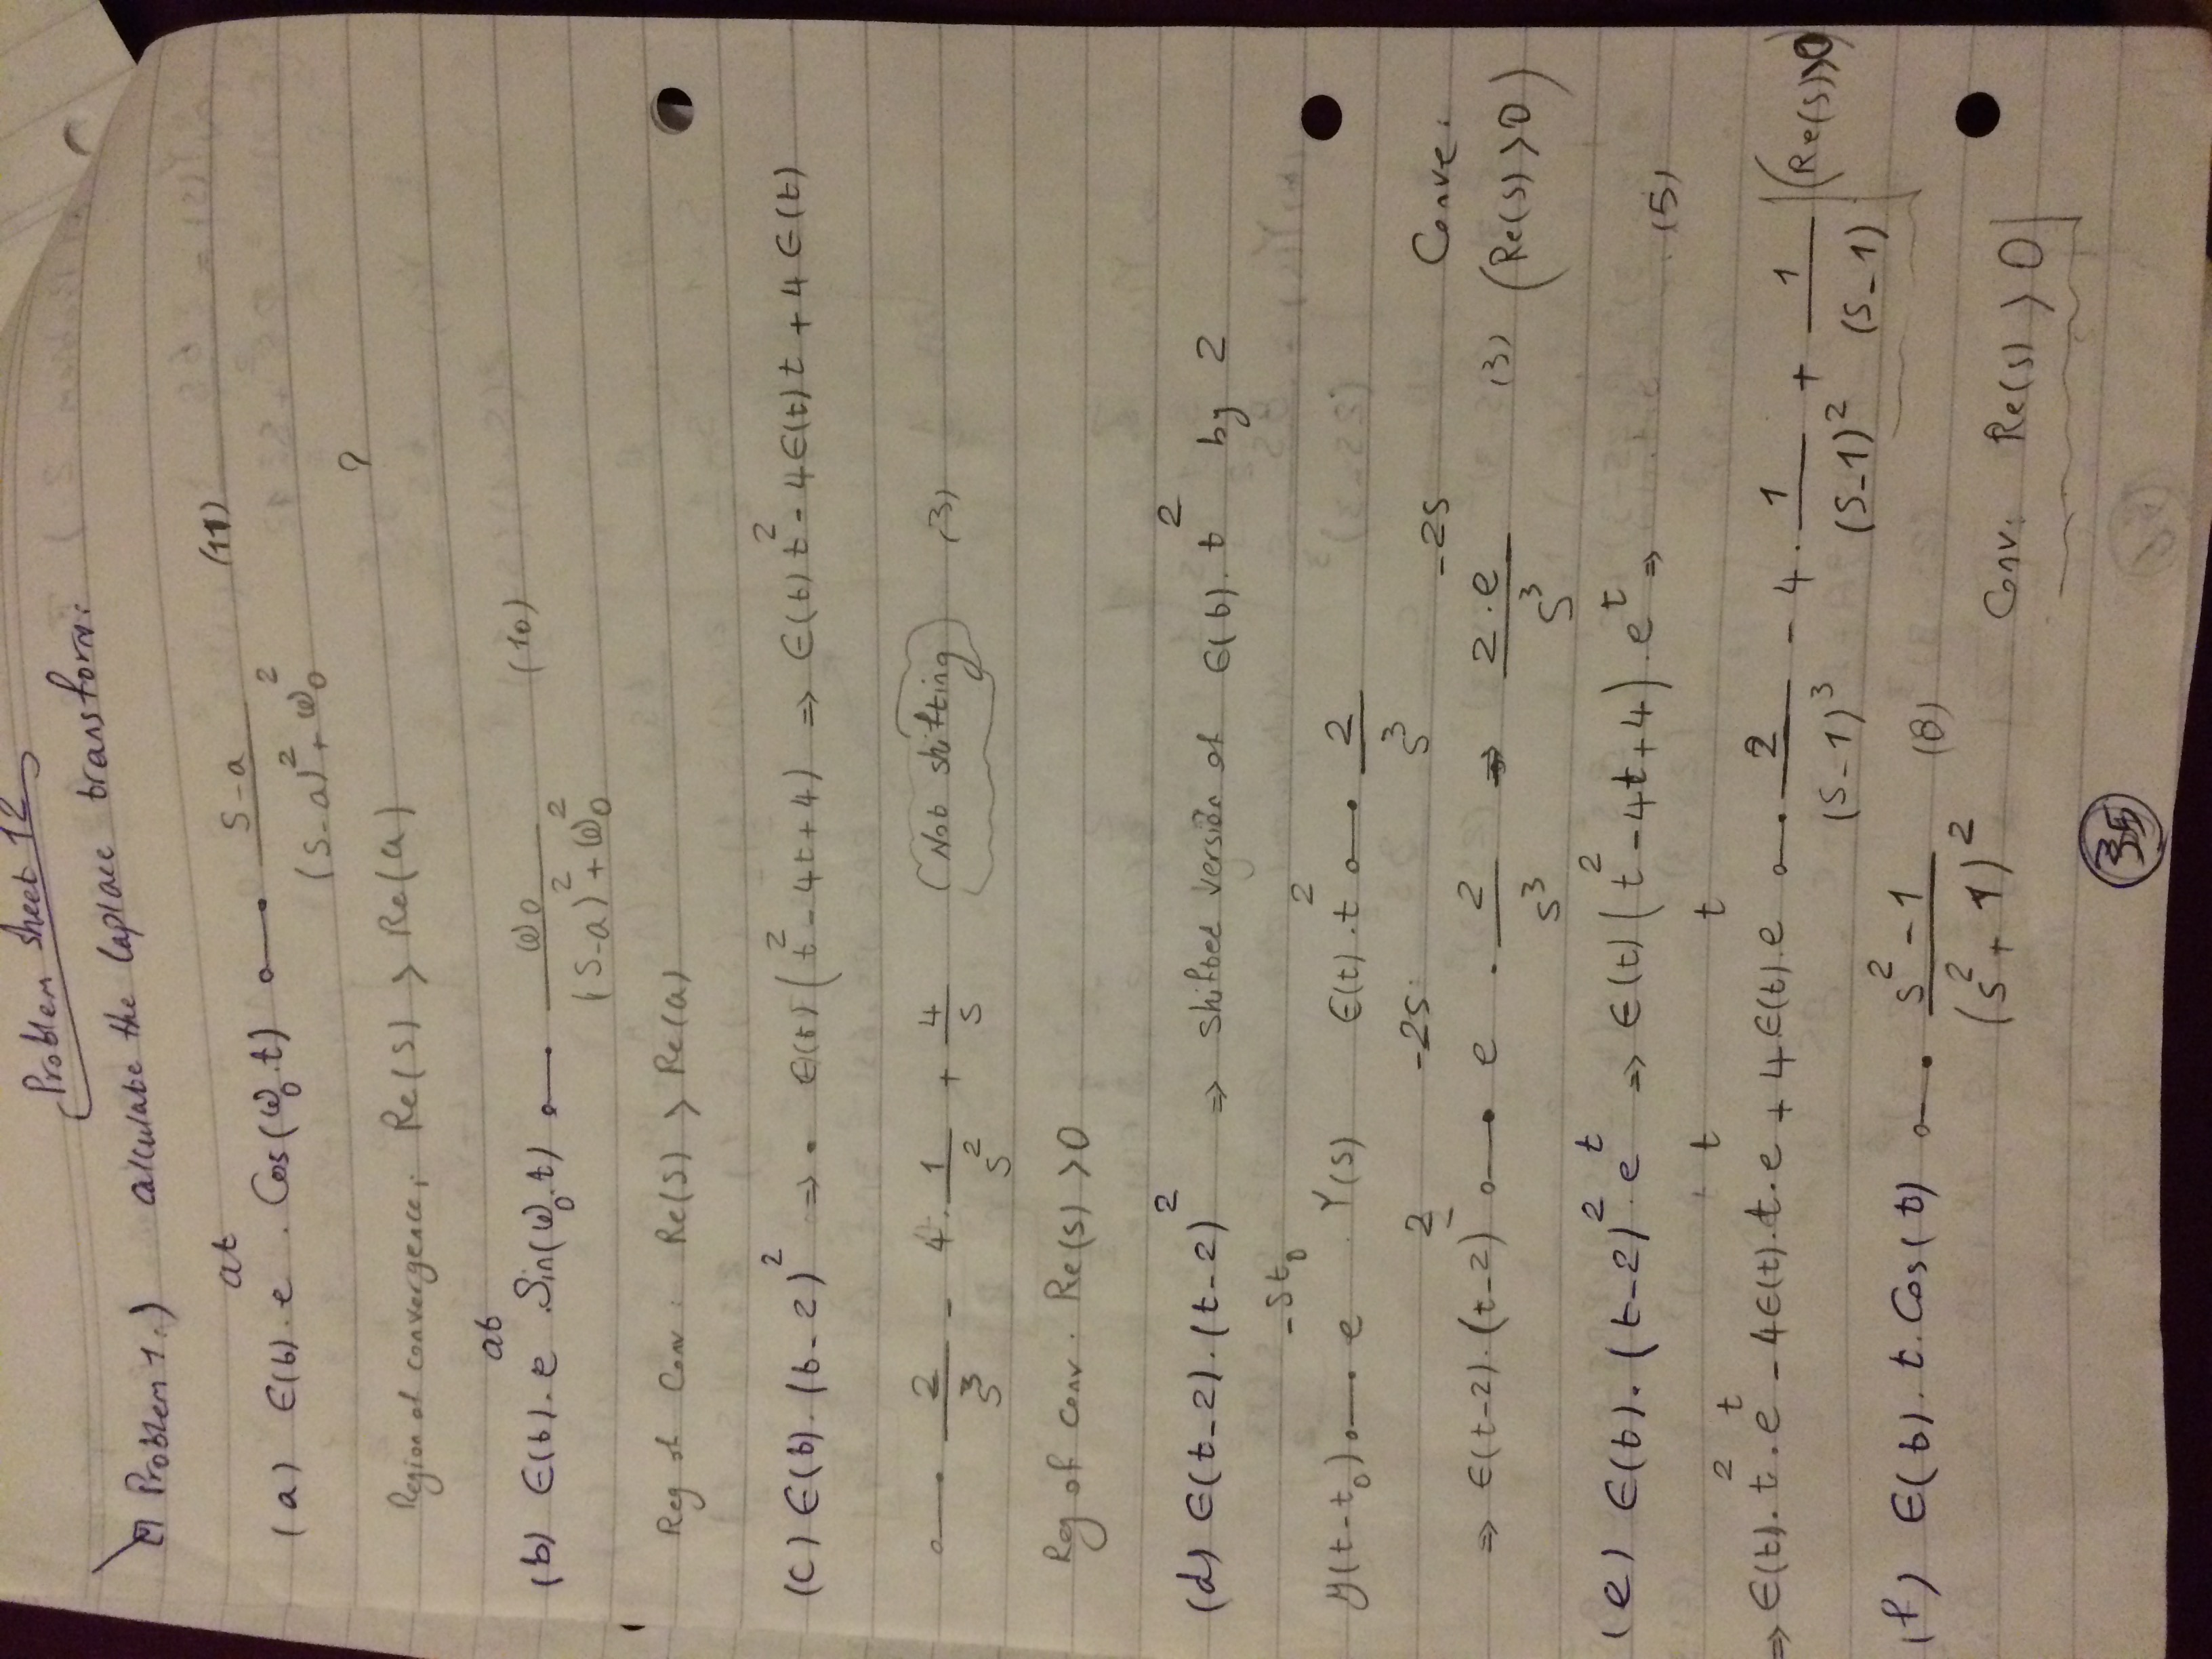 Problem Sheet 12
Problem 1.) calculate the laplace transform:
(a) ϵ(t) . e^{at} . Cos(ω₀.t) o—• (s-a)/((s-a)²+ω₀²) (11)
Region of convergence: Re(s) > Re(a) ?
(b) ϵ(t) . e^{at} . Sin(ω₀.t) o—• ω₀/((s-a)²+ω₀²) (10)
Reg of Conv : Re(s) > Re(a)
(c) ϵ(t) . (t-2)² ⇒ . ϵ(t) (t² - 4t + 4) ⇒ ϵ(t) t² - 4ϵ(t) t + 4 ϵ(t)
o—• 2/s³ - 4 . 1/s² + 4/s (Not shifting) (3)
Reg of conv . Re(s) > 0
(d) ϵ(t-2) . (t-2)² ⇒ shifted version of ϵ(t) . t² by 2
y(t-t₀) o—• e^{-st₀} . Y(s) ϵ(t) . t² o—• 2/s³
⇒ ϵ(t-2) . (t-2)² o—• e^{-2s} . 2/s³ ⇒ 2.e^{-2s}/s³ (3) Conve: (Re(s) > 0)
(e) ϵ(t) . (t-2)² . e^t ⇒ ϵ(t) (t² - 4t + 4) . e^t ⇒ (5)
⇒ ϵ(t) . t² . e^t - 4ϵ(t) . t . e^t + 4 ϵ(t) . e^t o—• 2/(s-1)³ - 4 . 1/(s-1)² + 1/(s-1) (Re(s) > 0)
(f) ϵ(t) . t . Cos(t) o—• (s² - 1)/(s² + 1)² (8)
Conv: Re(s) > 0
35